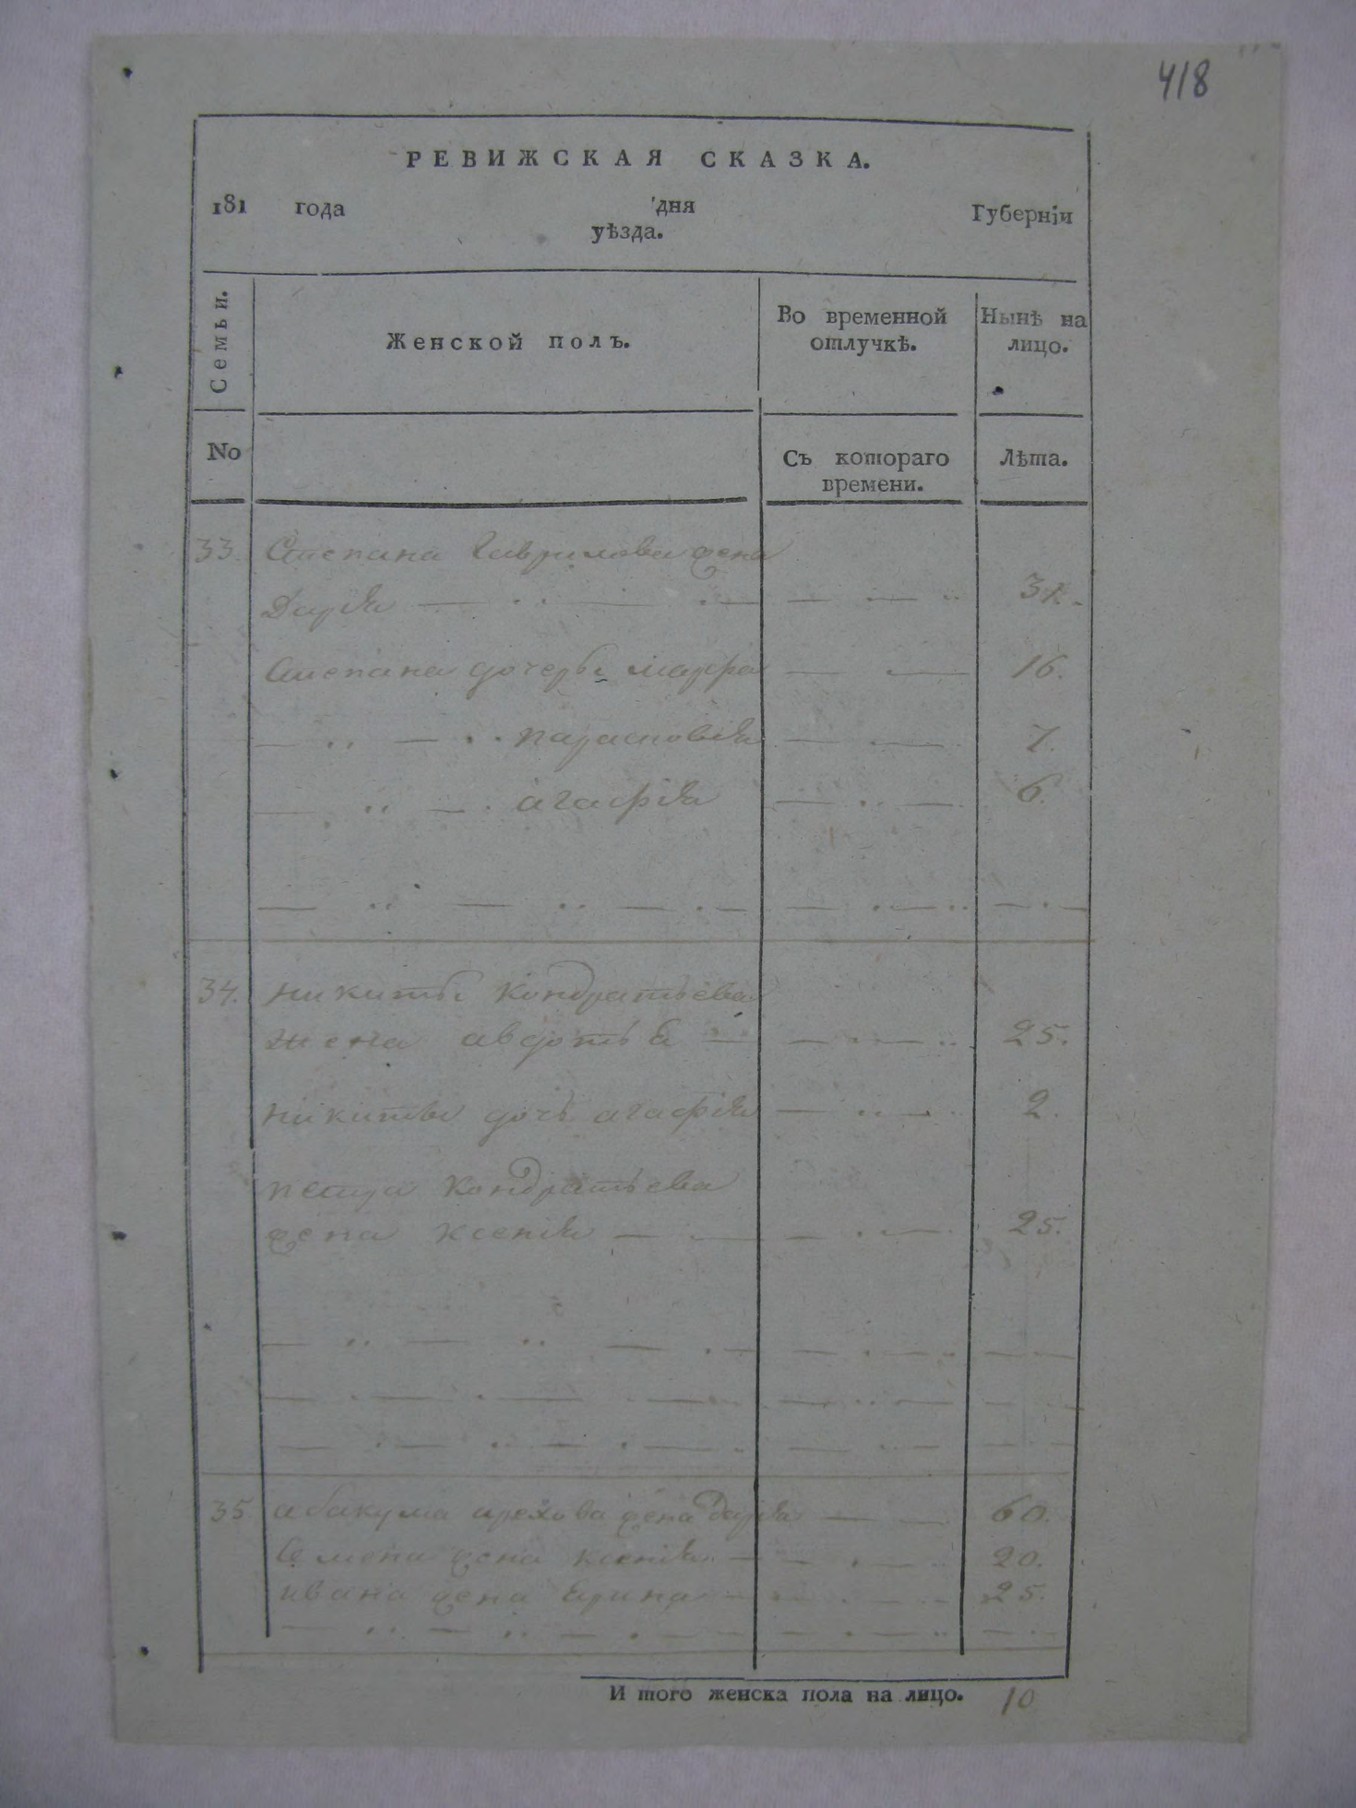 418
РЕВИЖСКАЯ СКАЗКА.
181 года дня Губерніи
уѣзда.
Семьи.
Женской полъ.
Во временной
отлучкѣ.
Нынѣ на
лицо.
No
Съ котораго
времени.
Лѣта.
33. Степана Гаврилова жена
Дарія
Степана дочери Марфа 16.
Парасковія 7.
агафія 6.
34. Никиты Кондратьева
жена авдотья 25.
Никиты дочь агафія 2.
Петра Кондратьева
жена ксенія 25.
35 абакума орехова жена Дарія 60.
Семена жена ксенія 20.
ивана жена Ирина 25.
И того женска пола на лицо. 10